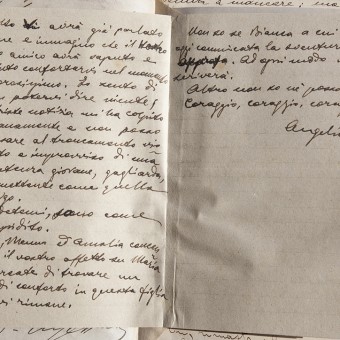 vi avrà già parlato
e e immagino che il vostro
amico avrà saputo e
uto confortarvi nel momento
Io sento di
potervi dire niente!
iste notizia mi ha colpito
anamente e non posso
sare al troncamento vio
to e improvviso di una
stenza giovane, gagliarda,
mettente come quella

sono come
pidito.
Memmo ed Amalia concen
il vostro affetto su Maria
rcate di trovare un
di conforto in questa figlia
vi rimane.
Non so se Bianca a cui
comunicata la sventura
Ad ogni modo
scriverà.
Altro non so nè posso
Coraggio, coraggio, cora
Angelo